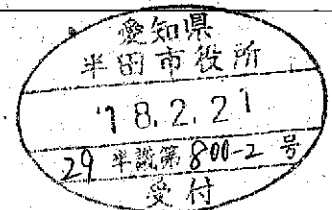 愛知県
半田市役所
'18.2.21
29半議第800-2号
受付